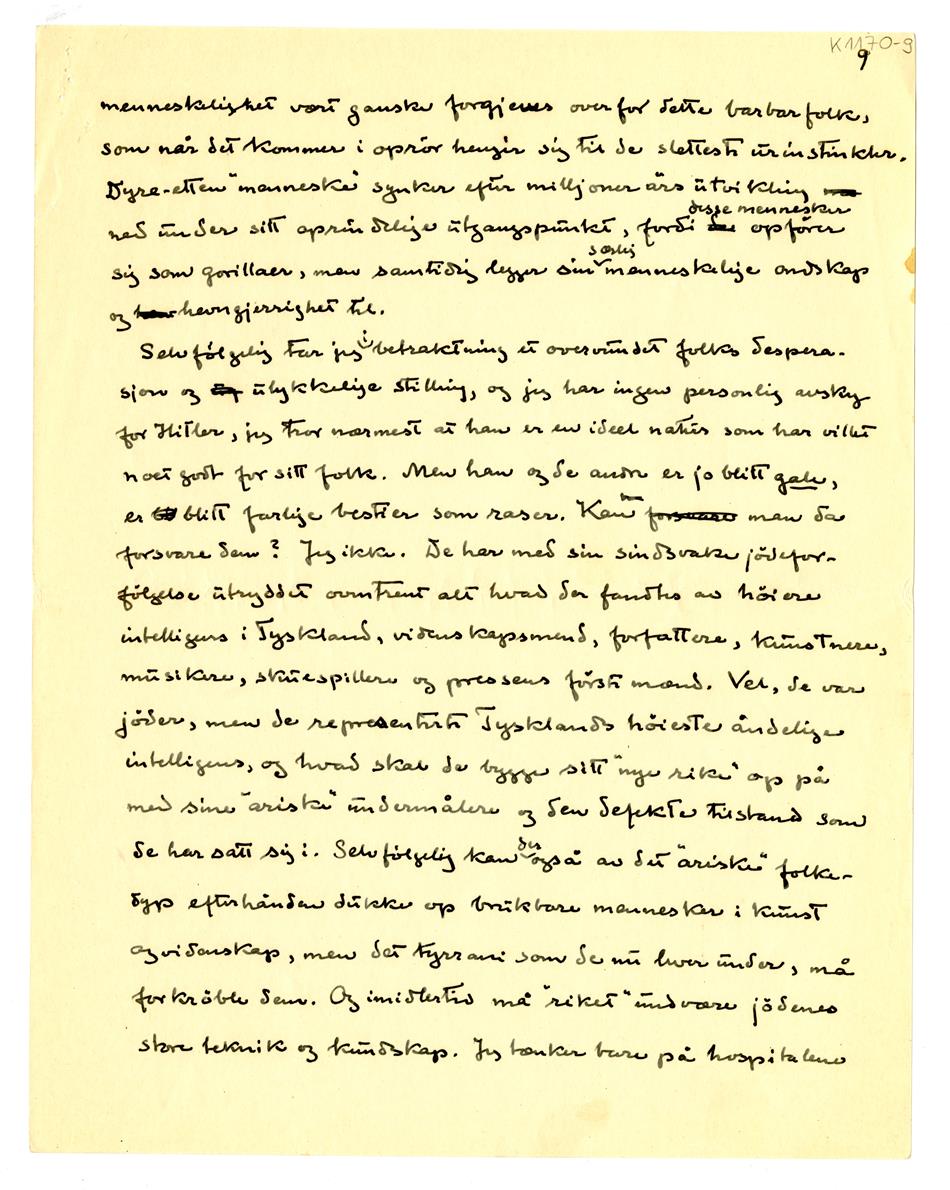 K1170-9
9
menneskelighet vært ganske forgjeves overfor dette barbarfolk,
som når det kommer i oprör hengir sig til de slettesti urinstinkter.
Dyre-etten "menneske" synker efter milljoner års utvikling
disse mennesker
ned under sitt oprindelige utgangspunkt, fordi de opförer
særlig
sig som gorillaer, men samtidig legger sin menneskelige ondskap
og hevngjerrighet til.
Selvfölgelig tar jeg i betraktning et overvundet folks despera-
sjon og ulykkelige stilling, og jeg har ingen personlig avsky
for Hitler, jeg tror nærmest at han er en ideel natur som har villet
noet godt for sitt folk. Men han og de andre er jo blitt gale,
er blitt farlige bestier som raser. Kan forsvare man da
forsvare dem? Jeg ikke. De har med sin sindsvake jödefor-
fölgelse utryddet omtrent alt hvad der fandtes av höiere
intelligens i Tyskland, videnskapsmend, forfattere, kunstnere,
musikere, skuespillere og pressens första mænd. Vel, de var
jöder, men de representerte Tysklands höieste åndelige
intelligens, og hvad skal de bygge sitt "nye rike" op på
med sine "ariske" undermålere og den defekte tilstand som
de har satt sig i. Selvfölgelig kan der også av det "ariske" folke-
dyp efterhånden dukke op brukbare mennesker i kunst
og videnskap, men det tyrrani som de nu lever under, må
forkröble dem. Og imidlertid må "riket" undvære jödenes
store teknik og kundskap. Jeg tænker bare på hospitalene